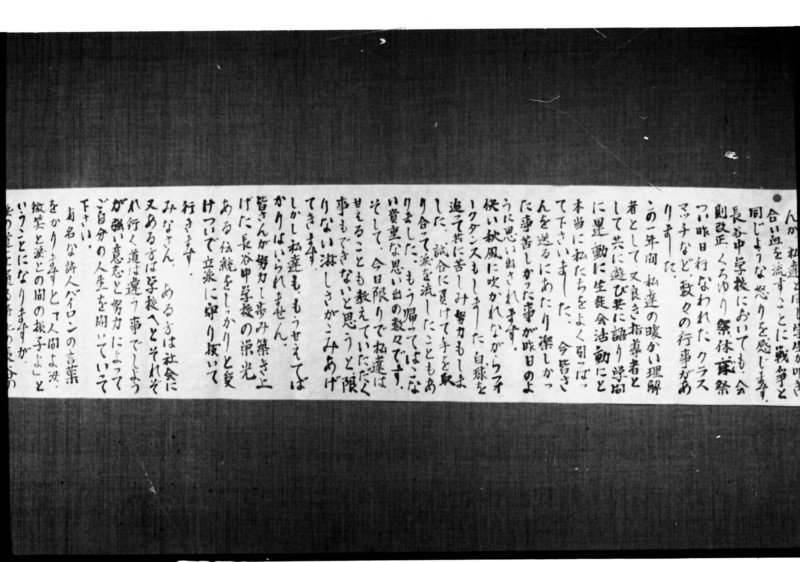 合い血を流すことに戦争と
同じような怒りを感じます。
長谷中学校においても、会
則改正、くちゆり祭、体育祭
つい昨日行なわれたクラス
マッチなど、数々の行事があ
りました。
この一年間私達の暖かい理解
者として又良き指導者と
して共に遊び共に語り学習
に運動に生徒会活動にと
本当に私たちをよく引っぱっ
て下さいました。今皆さ
んを送るにあたり楽しかっ
た事苦しかった事が昨日のよ
うに思い出されます。
快い秋風に吹かれながらフォ
ークダンスもしました。白球を
追って共に苦しみ努力もしま
した。試合に負けて手を取
り合って涙を流したこともあ
りました。もう帰ってはこな
い貴重な思い出の数々です。
そして、今日限りで私達は
甘えることも教えていただく
事もできないと思うと限
りない淋しさがこみあげ
てきます。
しかし私達も、もう甘えてば
かりはいられません。
皆さんが努力し歩み築き上
げた長谷中学校の栄光
ある伝統をしっかりと受
けついで立派に守り抜いて
行きます。
みなさん、ある方は社会に
又ある方は学校へとそれぞ
れ行く道は違う事でしょう
が強い意志と努力によって
ご自分の人生を開いていって
下さい。
有名な詩人バイロンの言葉
をかりますと「人間よ汝、
微笑と涙との間の振子よ」と
いうことになりますが、